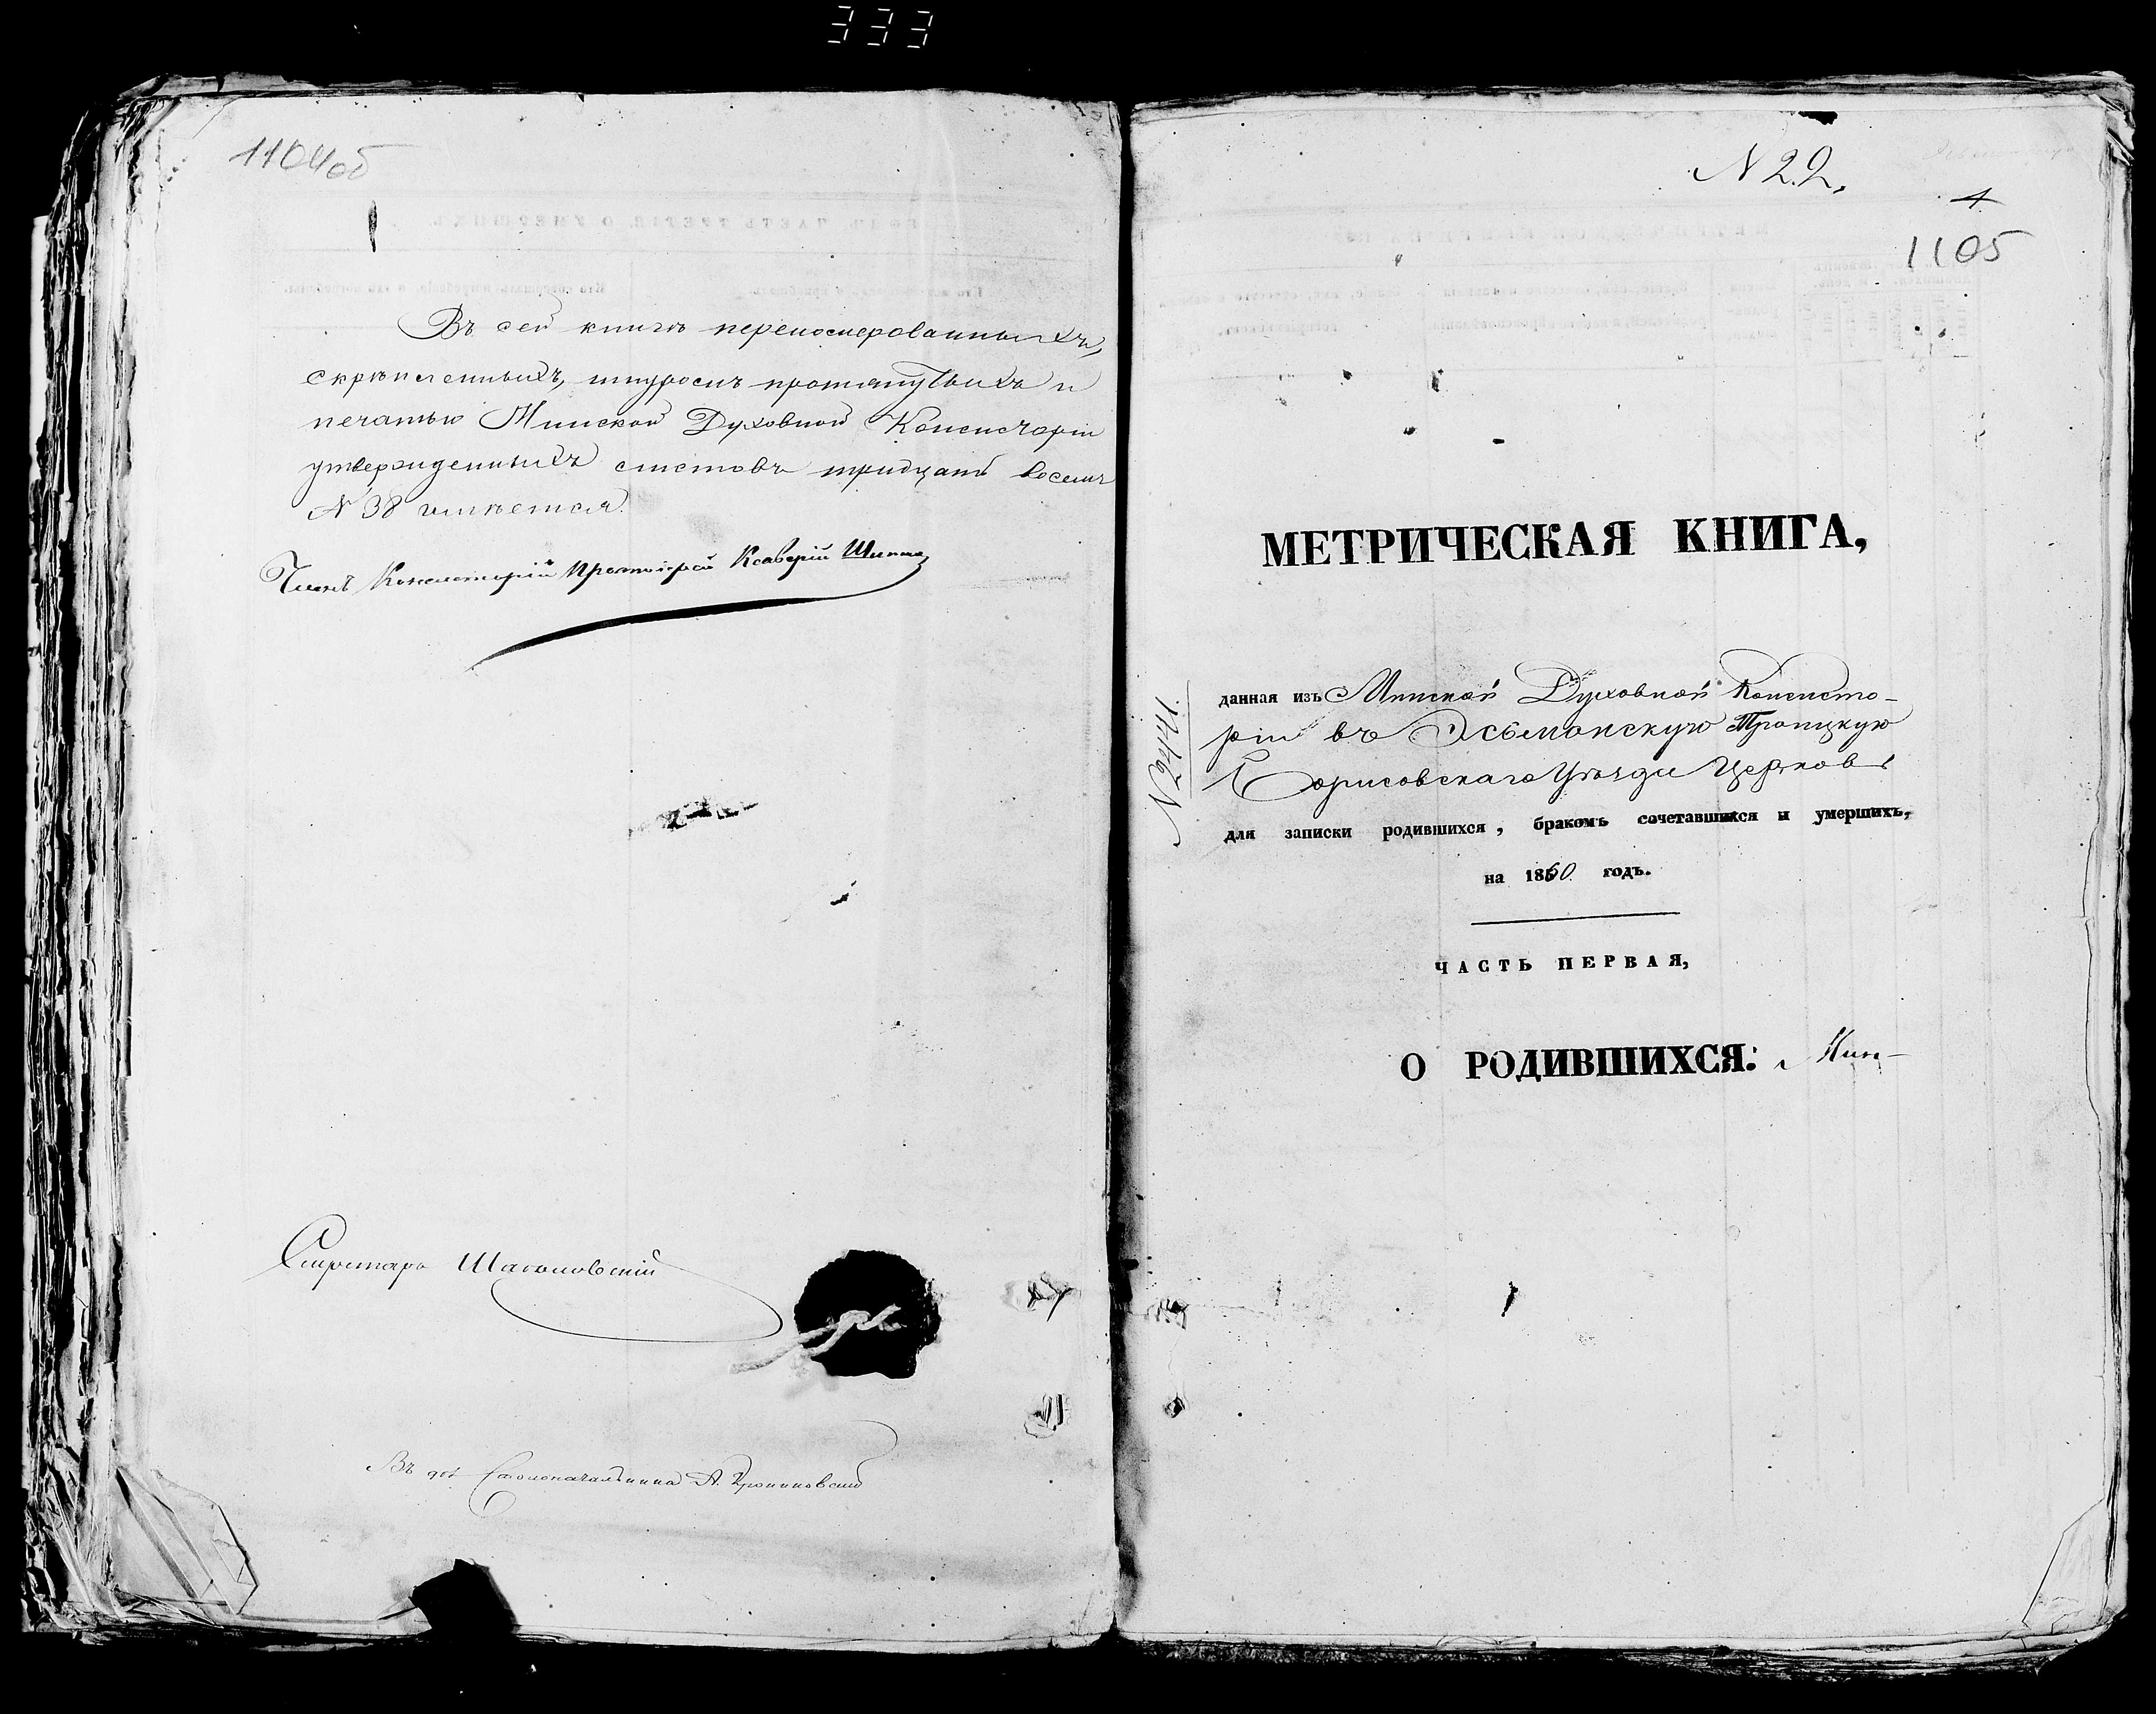 333
1104об
Въ сей книгѣ перенумерованныхъ,
скрѣпленныхъ, шнуромъ протянутыхъ и
печатью Минской Духовной Консисторіи
утвержденныхъ листовъ тридцать восемь
№ 38 имѣется.
Членъ Консисторіи Протоіерей Ксаверій
Секретарь
Въ Столоначальника А.
N 22.
1
1105
МЕТРИЧЕСКАЯ КНИГА,
данная изъ Минской Духовной Консисто-
ріи въ Эсьмонскую Троицкую
Борисовскаго Уѣзда Церковь
N 2441
для записки родившихся, бракомъ сочетавшихся и умершихъ,
на 1860 годъ.
ЧАСТЬ ПЕРВАЯ,
О РОДИВШИХСЯ: Мин-